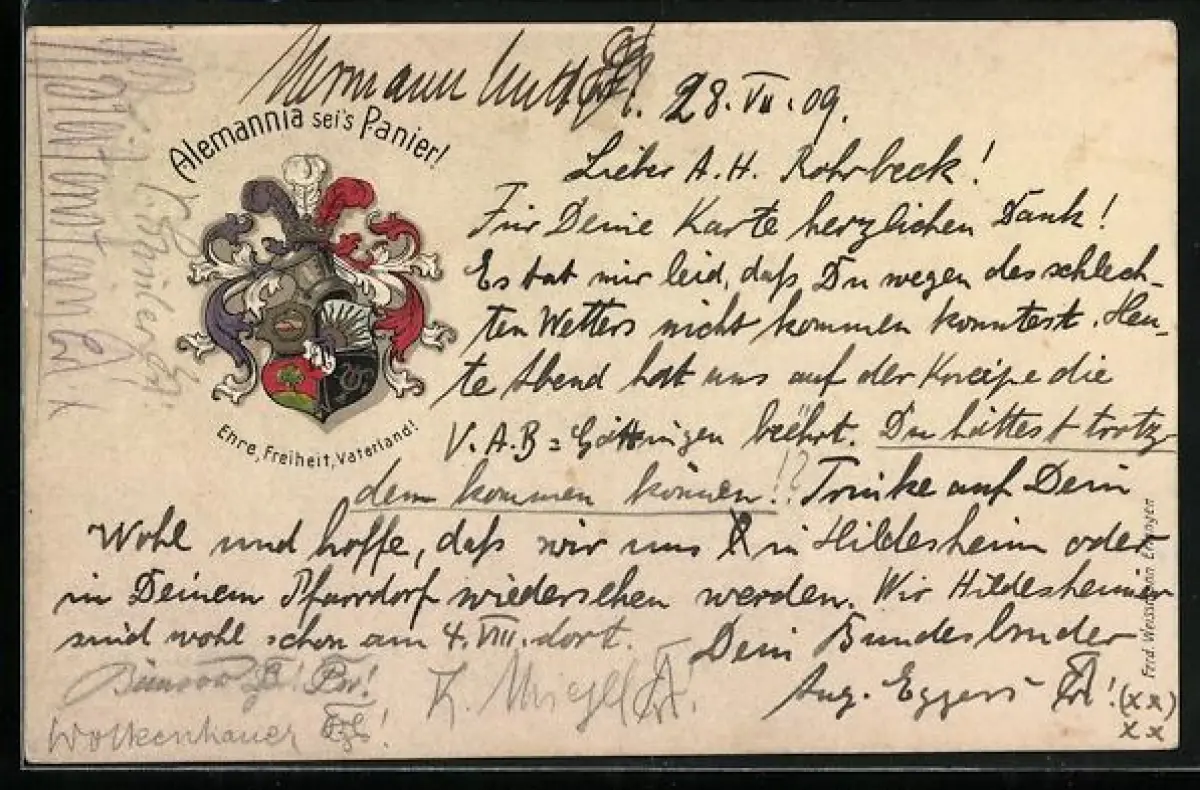 Hermann
28. VII. 09.
Alemannia sei's Panier!
Lieber A. H. Rohrbeck!
Für Deine Karte herzlichen Dank!
Es tat mir leid, daß Du wegen des schlech-
ten Wetters nicht kommen konntest. Heu-
te Abend hat uns auf der Kneipe die
V. A. B = Göttingen beehrt. Du hättest trotz-
dem kommen können!!? Trinke auf Dein
Wohl und hoffe, daß wir uns in Hildesheim oder
in Deinem Pfarrdorf wiedersehen werden. Wir Hildesheimer
sind wohl schon am 4. VIII. dort.
Dein Bundesbruder
Aug. Eggers ! (x x)
x x
Ehre, Freiheit, Vaterland!
Wolkenhauer
Ferd. Weissmann Erlangen